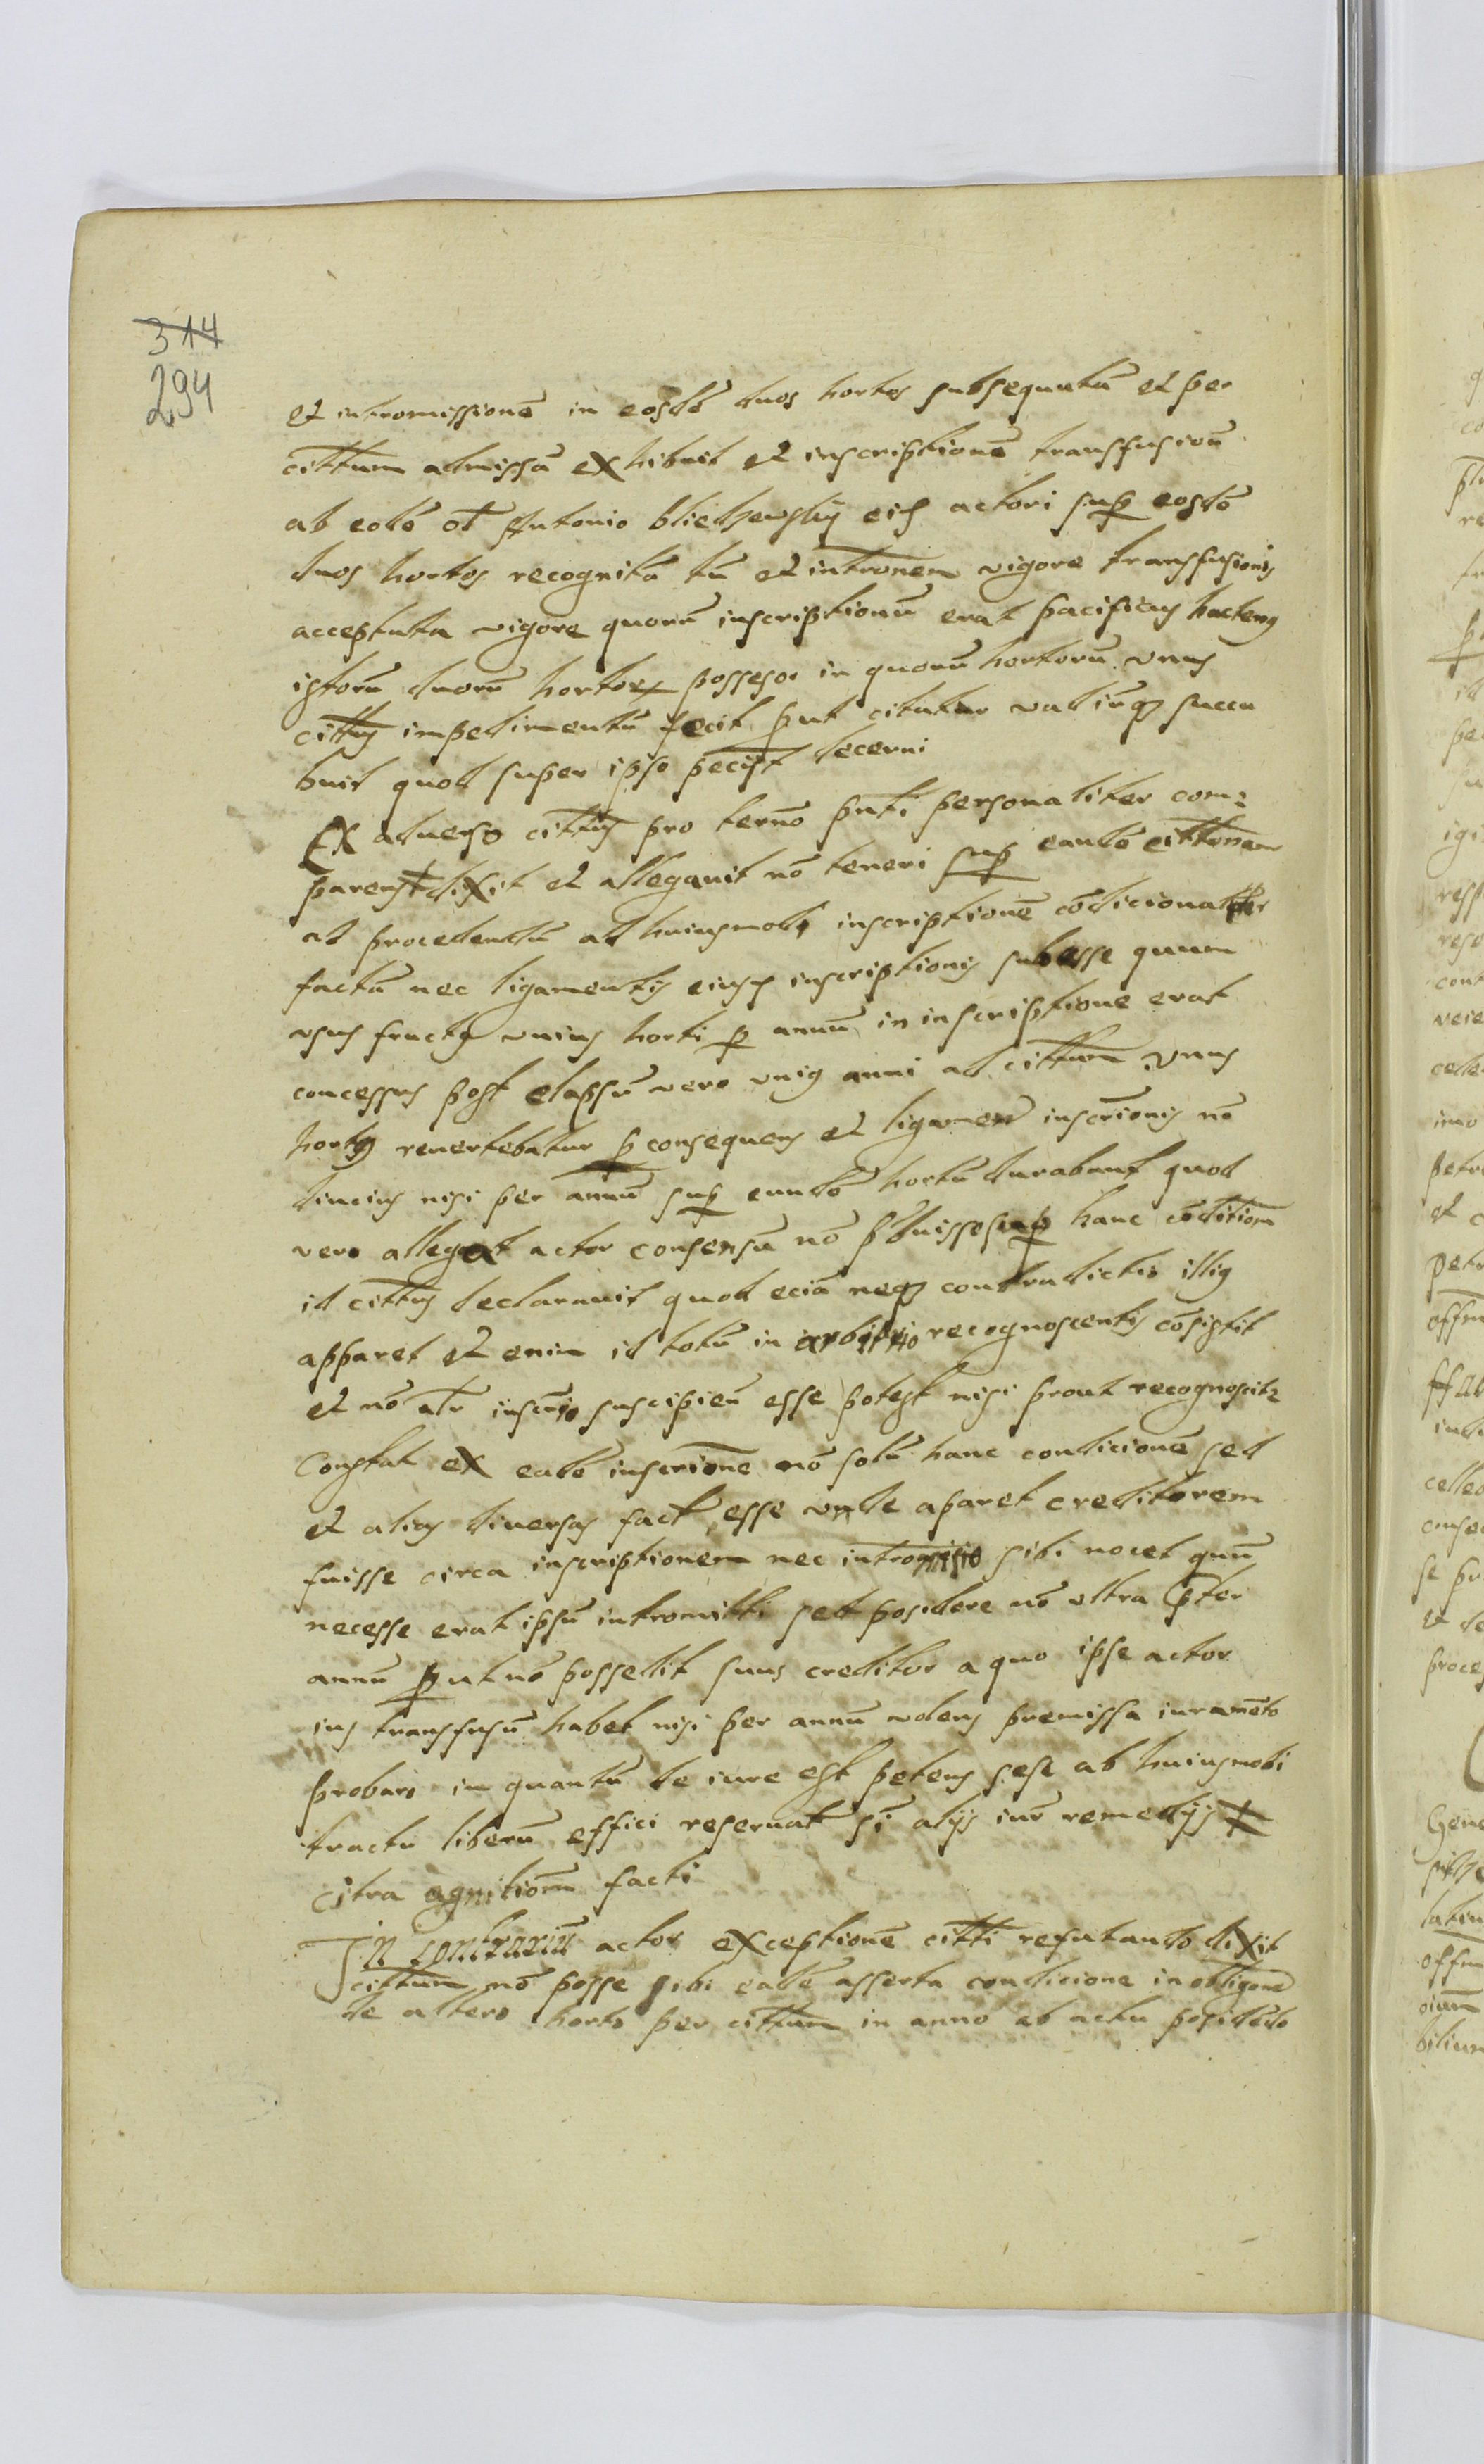 314
294
et intromissionē in eosdē duos hortos subsequutā et per
cittum admissā exhibuit et inscriptionē transfusionū
ab eodē ol Antonio eid actori sup eosdē
duos hortos recognitā tū et intronem vigore transfusionis
acceptata vigore quorū inscriptionū erat pacificus hacteng
istorū duorū hortor possesor in quorū hortorū vnus
cittus impedimentū fecit put citatur vadiūq succu
buit quod super ipso peciit decerni
Ex aduerso cittus pro termō pnti personaliter com:
parens dixit et allegauit nō teneri sup eandē cittonem
ad procedendū ad huiusmodi inscriptionē cōdicionaliter
factā nec ligamentis eiusd inscriptionis subesse quum
vsus fructg vnius horti p annū in inscriptione erat
concessus post elapsū vero vnig anni ad cittum vnus
hortg reuertebatur p consequens et ligamen inscrionis nō
diucius nisi per annū sup eundē hortū durabant quod
vero allegat actor consensū nō pbuisse sup hanc cōditiom
id cittus declarauit quod eciā neq contradictio illig
apparet et enim id totū in arbitrio recognoscentis cōsistit
et nō alr inscrio suscipien esse potest nisi prout recognoscitr
Constat ex eadē inscrione nō solū hanc condicionē sed
et alias diuersas fact esse vnde aparet creditorem
fuisse circa inscriptionem nec intromisio sibi nocet quū
necesse erat ipsū intromitti sed posidere nō vltra pter
annū put nō possedit suus creditor a quo ipse actor
ius transfusū habet nisi per annū volens premissa iuramēto
probare in quantū de iure est petens sese ab huiusmodi
tractu liberū effici reseruat si alijs iur remedijs
citra agnitiom facti
In contrariū actor exceptionē citti refutando dixit
cittum nō posse sibi eadē asserta condicione in obligone
de altero horto per cittum in anno ab actu posidēdo